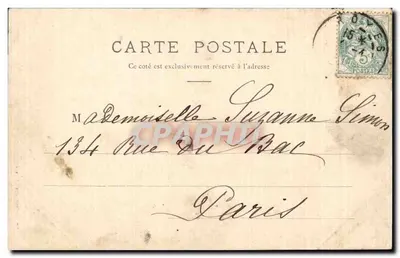 CARTE POSTALE
Ce côté est exclusivement réservé à l'adresse
Mademoiselle Suzanne Simon
134 Rue du Bac
Paris
CPAPHIL